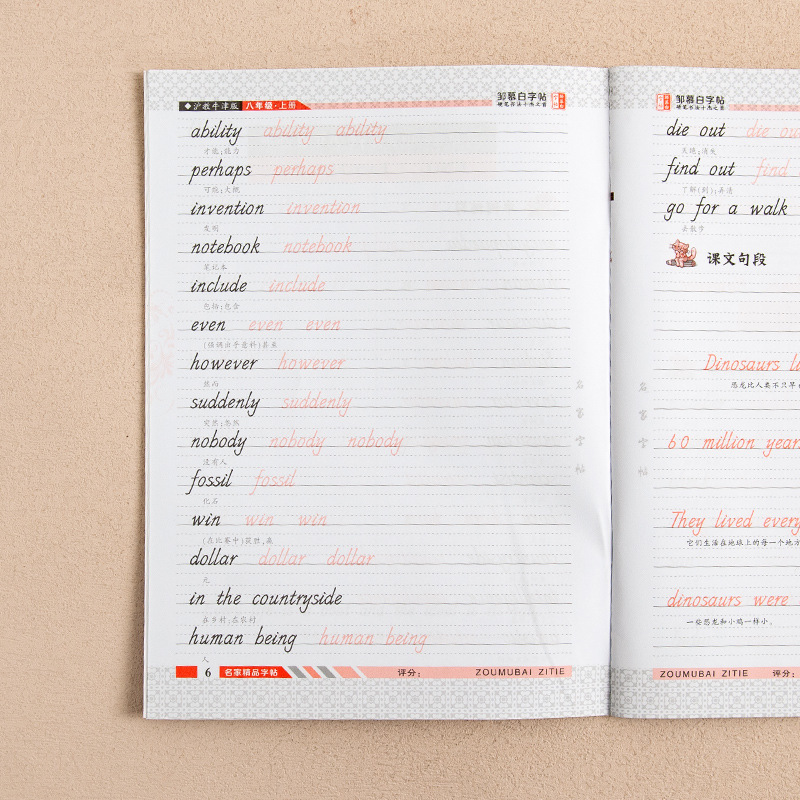 ◆沪教牛津版 八年级·上册 邹慕白字帖
硬笔书法十杰之首
ability ability ability
才能;能力
perhaps perhaps
可能;大概
invention invention
发明
notebook notebook
笔记本
include include
包括;包含
even even even
(强调出乎意料)甚至
however however
然而
suddenly suddenly
突然;忽然
nobody nobody nobody
没有人
fossil fossil
化石
win win win
(在比赛中)获胜;赢
dollar dollar dollar
元
in the countryside
在乡村;在农村
human being human being
人
名家字帖
6 名家精品字帖 评分: ZOUMUBAI ZITIE
邹慕白字帖
硬笔书法十杰之首
die out die ou
灭绝;消失
find out find
了解(到);弄清
go for a walk
去散步
课文句段
Dinosaurs li
恐龙比人类不只早
60 million year
They lived every
它们生活在地球上的每一个地方
dinosaurs were
一些恐龙和小鸡一样小。
名家字帖
ZOUMUBAI ZITIE 评分: